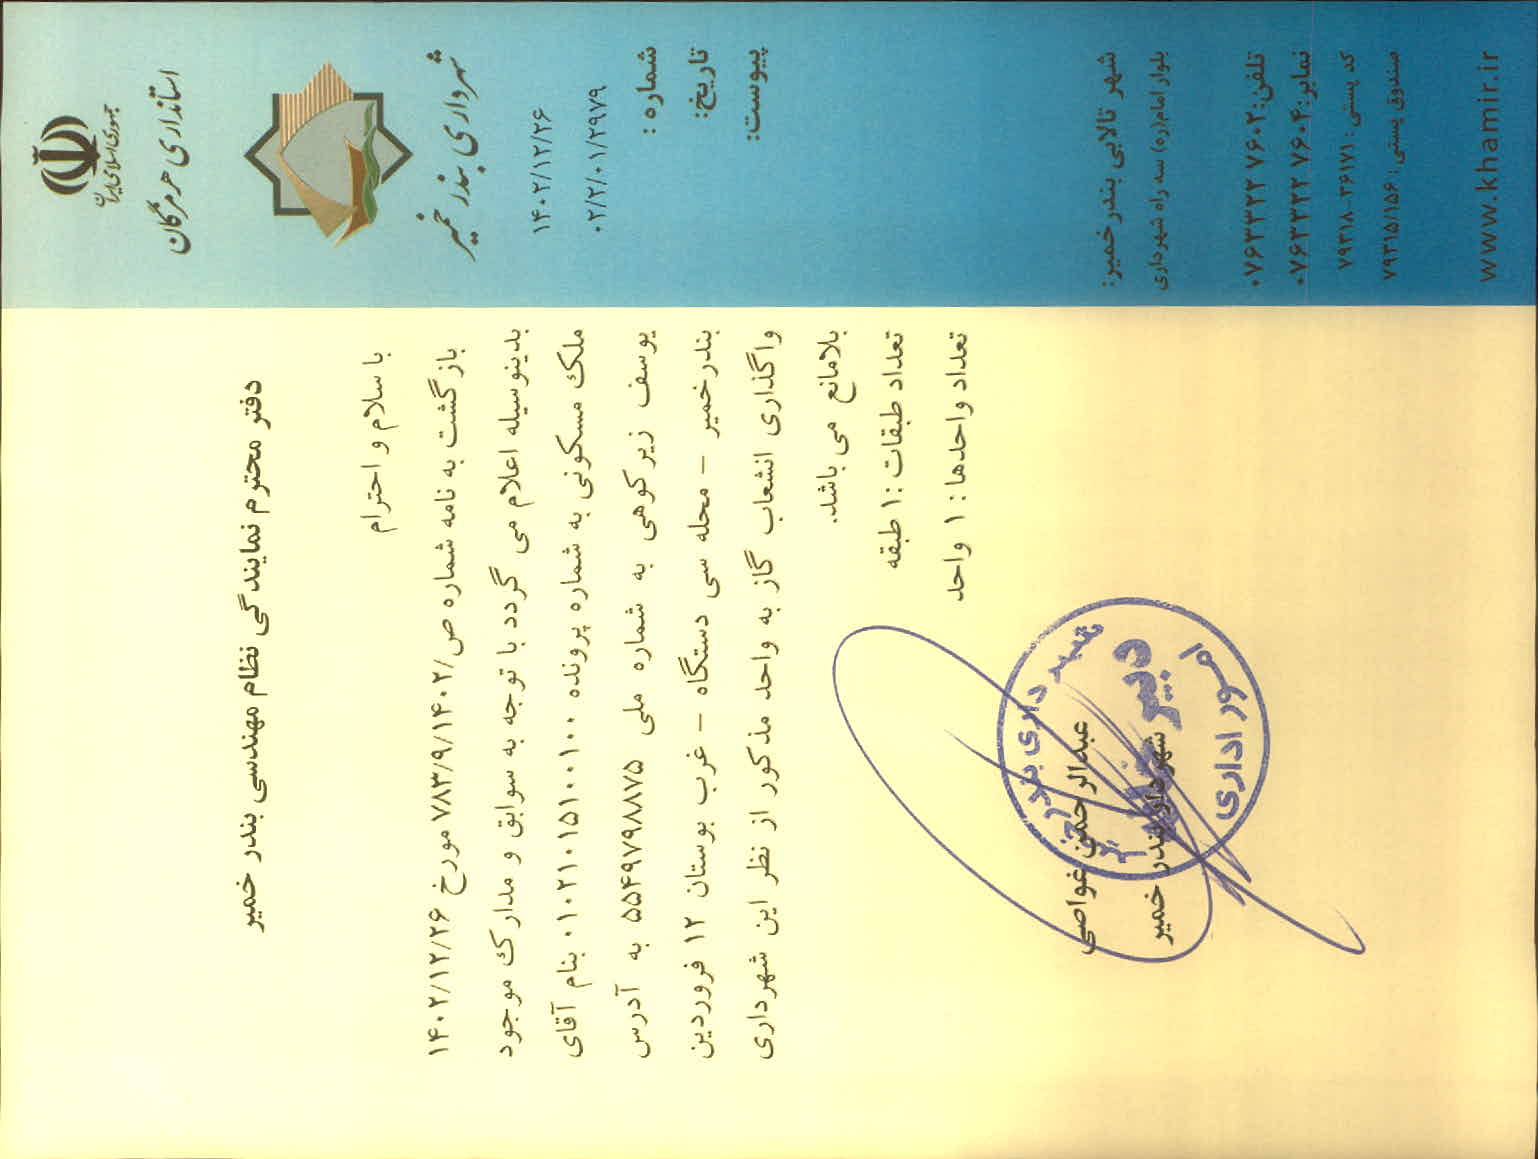 جمهوری اسلامی ایران
استانداری هرمزگان
شهرداری بندر خمیر
۱۴۰۲/۱۲/۲۶
۰۲/۲/۰۱/۲۹۷۹
شماره :
تاریخ:
پیوست:
دفتر محترم نمایندگی نظام مهندسی بندر خمیر
با سلام و احترام
بازگشت به نامه شماره ص/۷۸۳/۹/۱۴۰۲ مورخ ۱۴۰۲/۱۲/۲۶
بدینوسیله اعلام می گردد با توجه به سوابق و مدارک موجود
ملک مسکونی به شماره پرونده ۰۱۰۲۱۰۱۵۱۰۰۱۰۰ بنام آقای
یوسف زیرکوهی به شماره ملی ۵۵۴۹۷۹۸۸۷۵ به آدرس
بندرخمیر – محله سی دستگاه – غرب بوستان ۱۲ فروردین
واگذاری انشعاب گاز به واحد مذکور از نظر این شهرداری
بلامانع می باشد.
تعداد طبقات :۱ طبقه
تعداد واحدها : ۱ واحد
عبدالرحمن غواصی
شهردار بندر خمیر
شهرداری بندر خمیر
دبیرخانه
امور اداری
شهر تالابی بندرخمیر:
بلوار امام(ره) سه راه شهرداری
تلفن:۰۷۶۳۳۲۲۷۶۰۲
نمابر:۰۷۶۳۳۲۲۷۶۰۴
کد پستی : ۳۶۱۷۱-۷۹۳۱۸
صندوق پستی : ۷۹۳۱۵/۱۵۶
www.khamir.ir